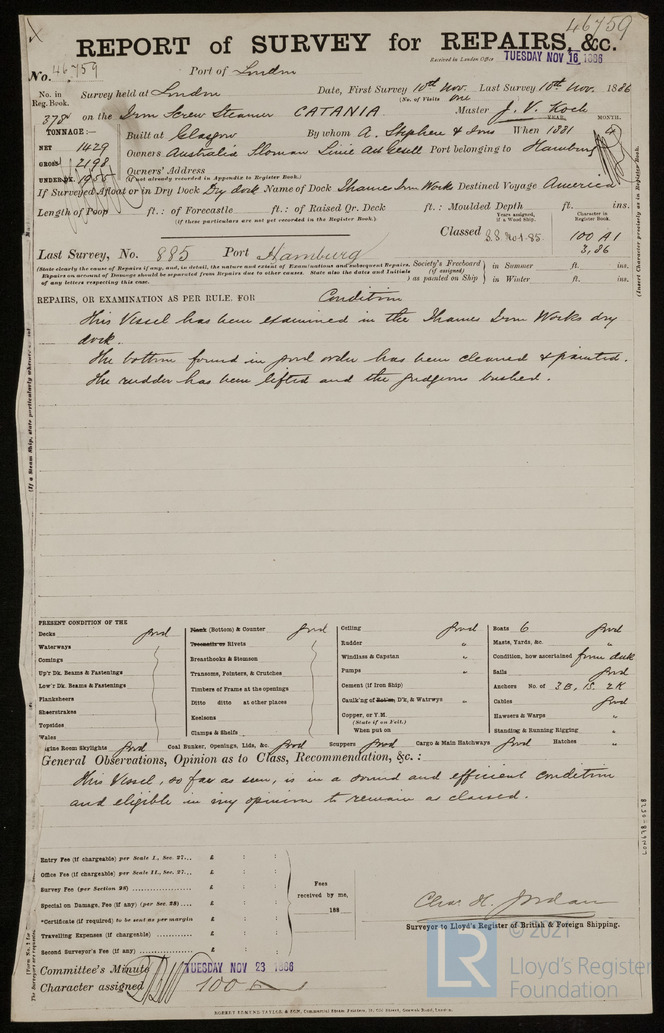 46759
REPORT of SURVEY for REPAIRS, &c.
Received in London Office TUESDAY NOV 16 1886
No. 46759 Port of London
No. in Reg. Book. Survey held at London Date, First Survey 10th Nov. Last Survey 10th Nov. 1886
(No. of Visits One
378 on the Iron Screw Steamer CATANIA Master J. V. Koch
TONNAGE:— Built at Glasgow By whom A. Stephen & Sons When 1881 4
YEAR. MONTH.
NET 1429 Owners Australia Sloman Linie Act Gesell Port belonging to Hamburg
GROSS 2198 Owners' Address
UNDER DK. (If not already recorded in Appendix to Register Book.)
If Surveyed Afloat or in Dry Dock Dry dock Name of Dock Thames Iron Work Destined Voyage America
Length of Poop ft.: of Forecastle ft.: of Raised Qr. Deck ft.: Moulded Depth ft. ins.
(if these particulars are not yet recorded in the Register Book.)
Years assigned, if a Wood Ship. Character in Register Book.
Classed S.S. No1-85. 100 A1
3,86
Last Survey, No. 885 Port Hamburg
(State clearly the cause of Repairs if any, and, in detail, the nature and extent of Examinations and subsequent Repairs. Repairs on account of Damage should be separated from Repairs due to other causes. State also the dates and Initials of any letters respecting this case.
Society's Freeboard (if assigned) as painted on Ship in Summer ft. ins.
in Winter ft. ins.
REPAIRS, OR EXAMINATION AS PER RULE. FOR Condition
This Vessel has been examined in the Thames Iron Works dry
dock.
The bottom found in good order has been cleaned & painted.
The rudder has been lifted and the gudgeons bushed.
PRESENT CONDITION OF THE
Decks Good
Waterways
Comings
Up'r Dk. Beams & Fastenings
Low'r Dk. Beams & Fastenings
Planksheers
Sheerstrakes
Topsides
Wales
Engine Room Skylights Good
Plank (Bottom) & Counter Good
Treenails or Rivets
Breasthooks & Stemson
Transoms, Pointers, & Crutches
Timbers of Frame at the openings
Ditto ditto at other places
Keelsons
Clamps & Shelfs
Coal Bunker, Openings, Lids, &c. Good
Ceiling Good
Rudder "
Windlass & Capstan "
Pumps "
Cement (if Iron Ship) "
Caulk'ng of D'k, & Watrwys "
Copper, or Y.M. (State if on Felt.)
When put on
Scuppers Good Cargo & Main Hatchways Good Hatches "
Boats 6 Good
Masts, Yards, &c. "
Condition, how ascertained from deck
Sails Good
Anchors No. of 3B, 1S, 2K
Cables Good
Hawsers & Warps "
Standing & Running Rigging "
General Observations, Opinion as to Class, Recommendation, &c.:
This Vessel, so far as seen, is in a sound and efficient condition
and eligible in my opinion to remain as classed.
Entry Fee (if chargeable) per Scale I., Sec. 27... £ : :
Office Fee (if chargeable) per Scale II., Sec. 27... £ : :
Survey Fee (per Section 28) £ : :
Special on Damage, Fee (if any) (per Sec. 28) £ : :
*Certificate (if required) to be sent as per margin
Travelling Expenses (if chargeable) £ : :
Second Surveyor's Fee (if any) £ : :
Fees received by me, 188
Chas H. Jordan
Surveyor to Lloyd's Register of British & Foreign Shipping.
Committee's Minute TUESDAY NOV 23 1886
Character assigned 100 A
(If a Steam Ship, state particulars
(Insert Character precisely as in Register Book.
LON698-0528
LR
© 2021
Lloyd's Register
Foundation